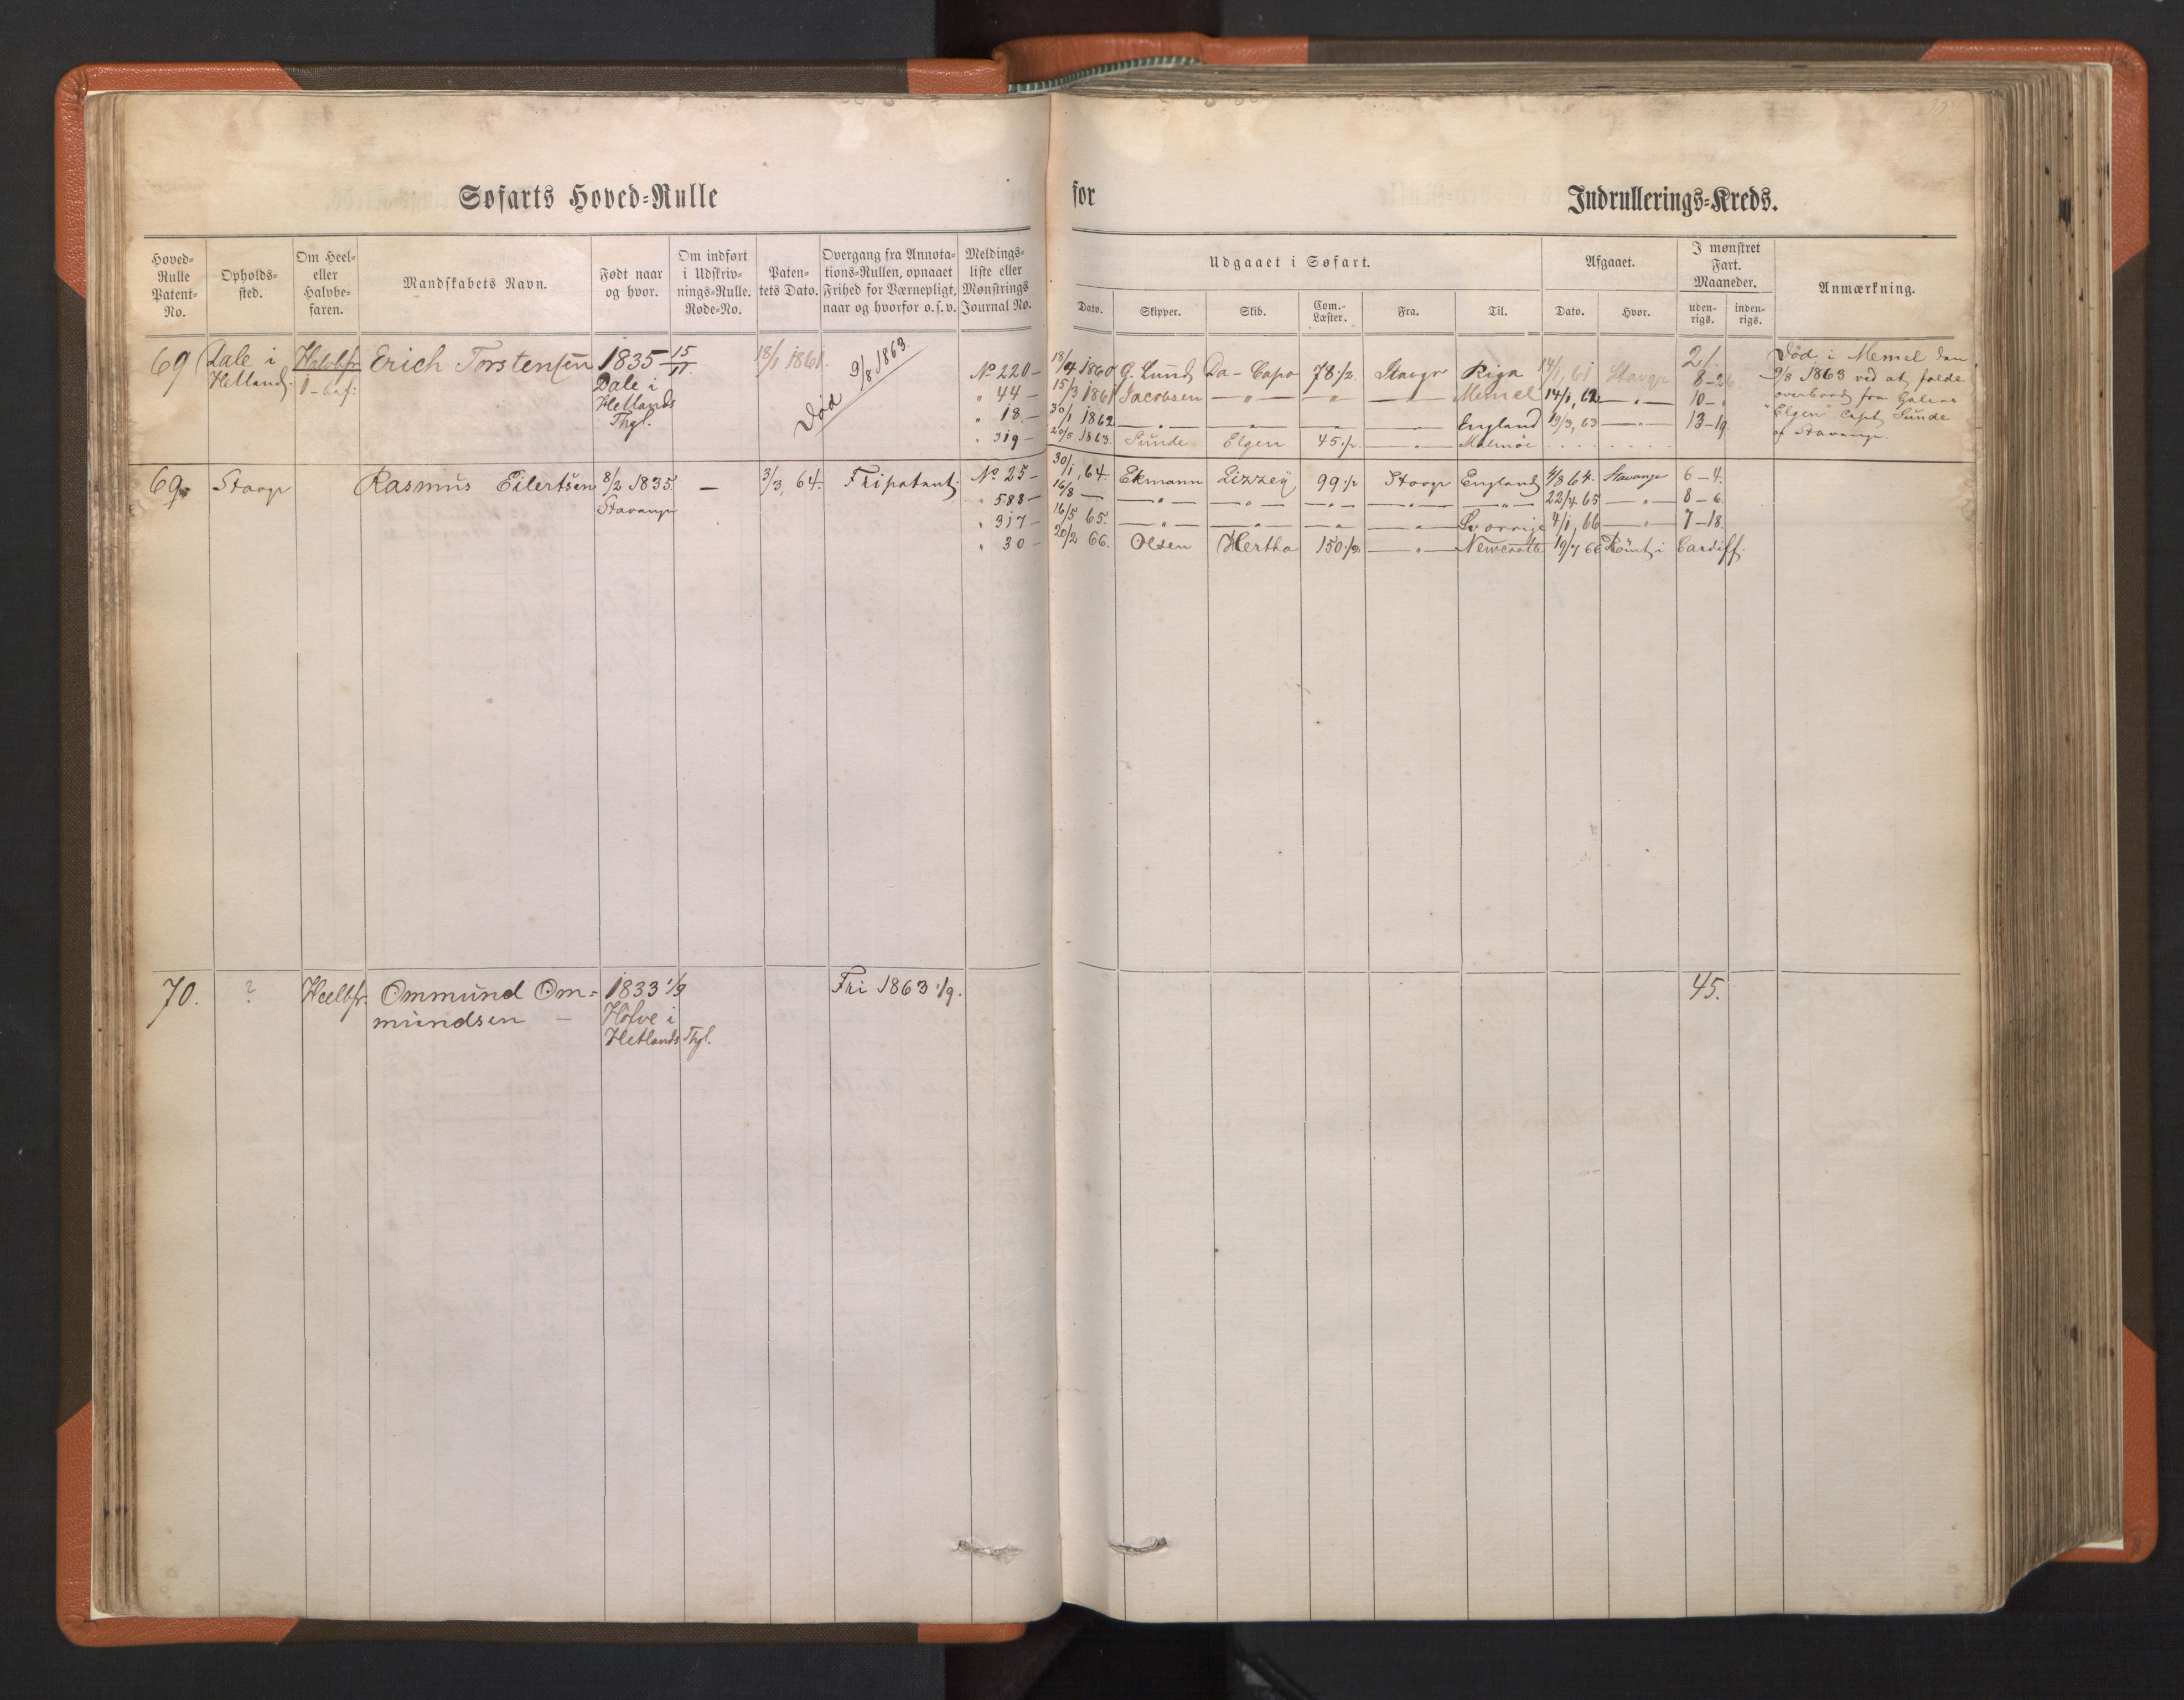 Søfarts Hoved-Rulle for Indrullerings-Kreds.
Hoved-Rulle Patent-No. Opholds-sted. Om Heel- eller Halvbe-faren. Mandskabets Navn. Født naar og hvor. Om indført i Udskriv-nings-Rulle. Rode-No. Paten-tets Dato. Overgang fra Annota-tions-Rullen, opnaaet Frihed for Værnepligt, naar og hvorfor o.s.v. Meldings-liste eller Mønstrings Journal No.
Udgaaet i Søfart. Afgaaet. I mønstret Fart. Maaneder. Anmærkning.
Dato. Skipper. Skib. Com.-Læster. Fra. Til. Dato. Hvor. uden-rigs. inden-rigs.
69 Dale i Halvbfr Erich Torstensen 1835 15/11. 18/1 1861. Død 9/8 1863. No 220 – 18/4 1860 G. Lund Da-Capo 78 1/2. Stavgr Riga 14/1, 61 Stavgr 21. Død i Memel den
Hetland. Dale i " 44 – 15/3 1861 Jacobsen — " — — " — — " — Memel 14/1, 62 — " — 8 – 26. 9/8 1863 ved at falde
Hetlands " 18. – 30/1 1862 — " — — " — — " — — " — England 19/3, 63 — " — 10 – " overbord fra Galeas
Thgl. " 319 – 20/5 1863. Sunde Elgen 45 1/2. — " — Malmöe 13 – 19 "Elgen" Capt. Sunde
af Stavanger.
69. Stavgr Rasmus Eilertsen 8/2 1835. – 3/3, 64. Fripatent. No 25 – 30/1, 64. Ekmann Lizzey 99 1/2 Stavgr England 4/8 64. Stavanger 6 – 4.
Stavanger " 588 – 16/8 — — " — — " — — " — — " — — " — 22/4. 65 — " — 8 – 6.
" 317 – 16/5 65. — " — — " — — " — — " — Sverrige 4/1, 66 — " — 7 – 18.
" 30 – 20/2 66. Olsen Hertha 150 1/2 — " — Newcastle 19/7 66 Römt i Cardiff.
70. ? Heelbfr. Ommund Om= 1833 1/9 Fri 1863 1/9. 45.
mundsen – Hofve i
Hetlands Thgl.